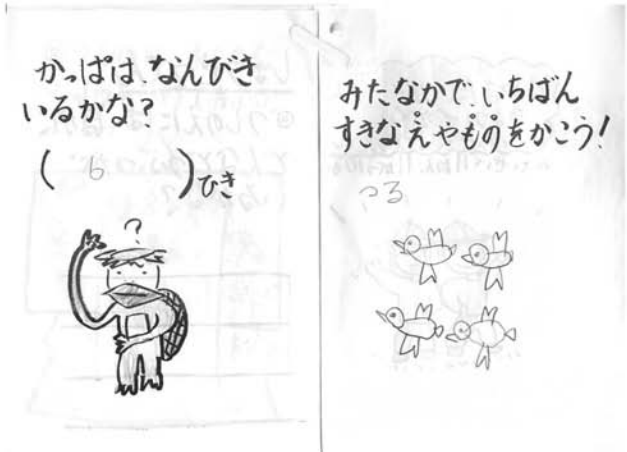 かっぱは、なんびき
いるかな?
( 6 )ひき
?
みたなかで、いちばん
すきなえやものをかこう!
つる